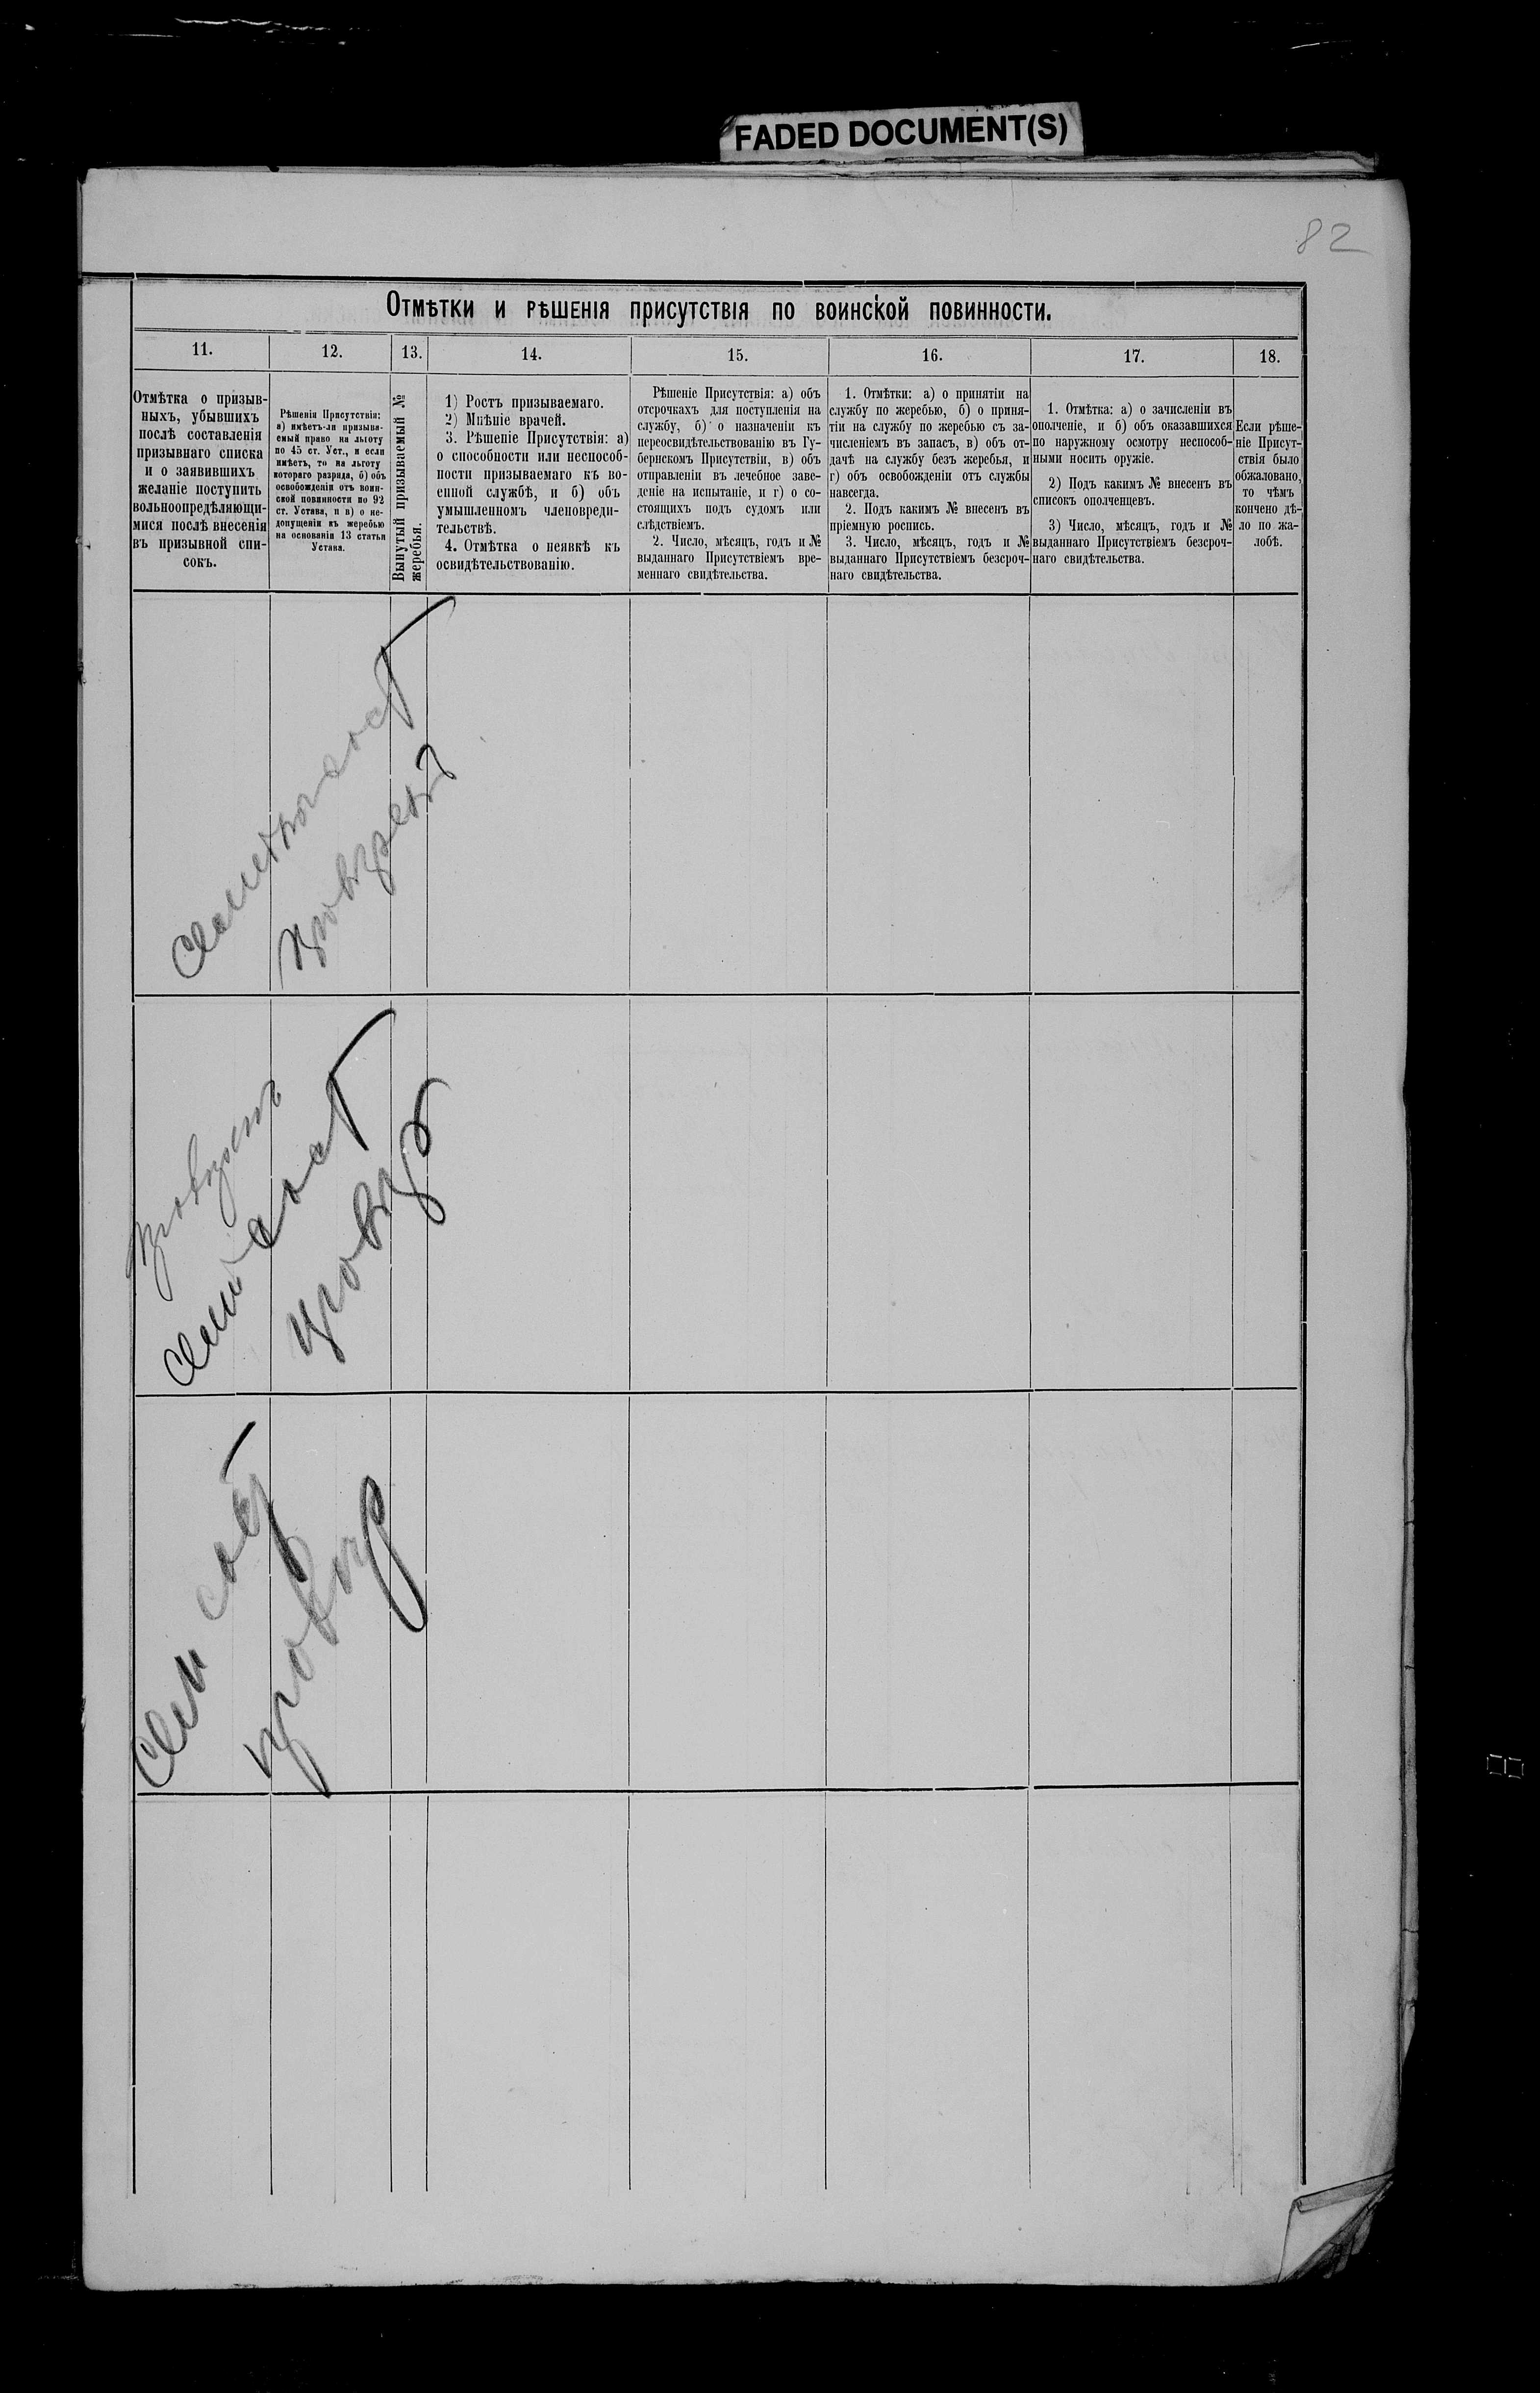 FADED DOCUMENT(S)
82
Отмѣтки и рѣшенія присутствія по воинской повинности.
11.
12.
13.
14.
15.
16.
17.
18.
Отмѣтка о призыв-
ныхъ, убывшихъ
послѣ составленія
призывнаго списка
и о заявившихъ
желаніе поступить
вольноопредѣляющи-
мися послѣ внесенія
въ призывной спи-
сокъ.
Рѣшенія Присутствія:
а) имѣетъ-ли призыва-
емый право на льготу
по 45 ст. Уст., и если
имѣетъ, то на льготу
котораго разряда, б) объ
освобожденіи отъ воин-
ской повинности по 92
ст. Устава, и в) о не-
допущеніи къ жеребью
на основаніи 13 статьи
Устава.
Вынутый призываемый №
жеребья.
1) Ростъ призываемаго.
2) Мнѣніе врачей.
3. Рѣшеніе Присутствія: а)
о способности или неспособ-
ности призываемаго къ во-
енной службѣ, и б) объ
умышленномъ членовреди-
тельствѣ.
4. Отмѣтка о неявкѣ къ
освидѣтельствованію.
Рѣшеніе Присутствія: а) объ
отсрочкахъ для поступленія на
службу, б) о назначеніи къ
переосвидѣтельствованію въ Гу-
бернскомъ Присутствіи, в) объ
отправленіи въ лечебное заве-
деніе на испытаніе, и г) о со-
стоящихъ подъ судомъ или
слѣдствіемъ.
2. Число, мѣсяцъ, годъ и №
выданнаго Присутствіемъ вре-
меннаго свидѣтельства.
1. Отмѣтки: а) о принятіи на
службу по жеребью, б) о приня-
тіи на службу по жеребью съ за-
численіемъ въ запасъ, в) объ от-
дачѣ на службу безъ жеребья, и
г) объ освобожденіи отъ службы
навсегда.
2. Подъ какимъ № внесенъ въ
пріемную роспись.
3. Число, мѣсяцъ, годъ и №
выданнаго Присутствіемъ безсроч-
наго свидѣтельства.
1. Отмѣтка: а) о зачисленіи въ
ополченіе, и б) объ оказавшихся
по наружному осмотру неспособ-
ными носить оружіе.
2) Подъ какимъ № внесенъ въ
списокъ ополченцевъ.
3) Число, мѣсяцъ, годъ и №
выданнаго Присутствіемъ безсроч-
наго свидѣтельства.
Если рѣше-
ніе Присут-
ствія было
обжаловано,
то чѣмъ
кончено дѣ-
ло по жа-
лобѣ.